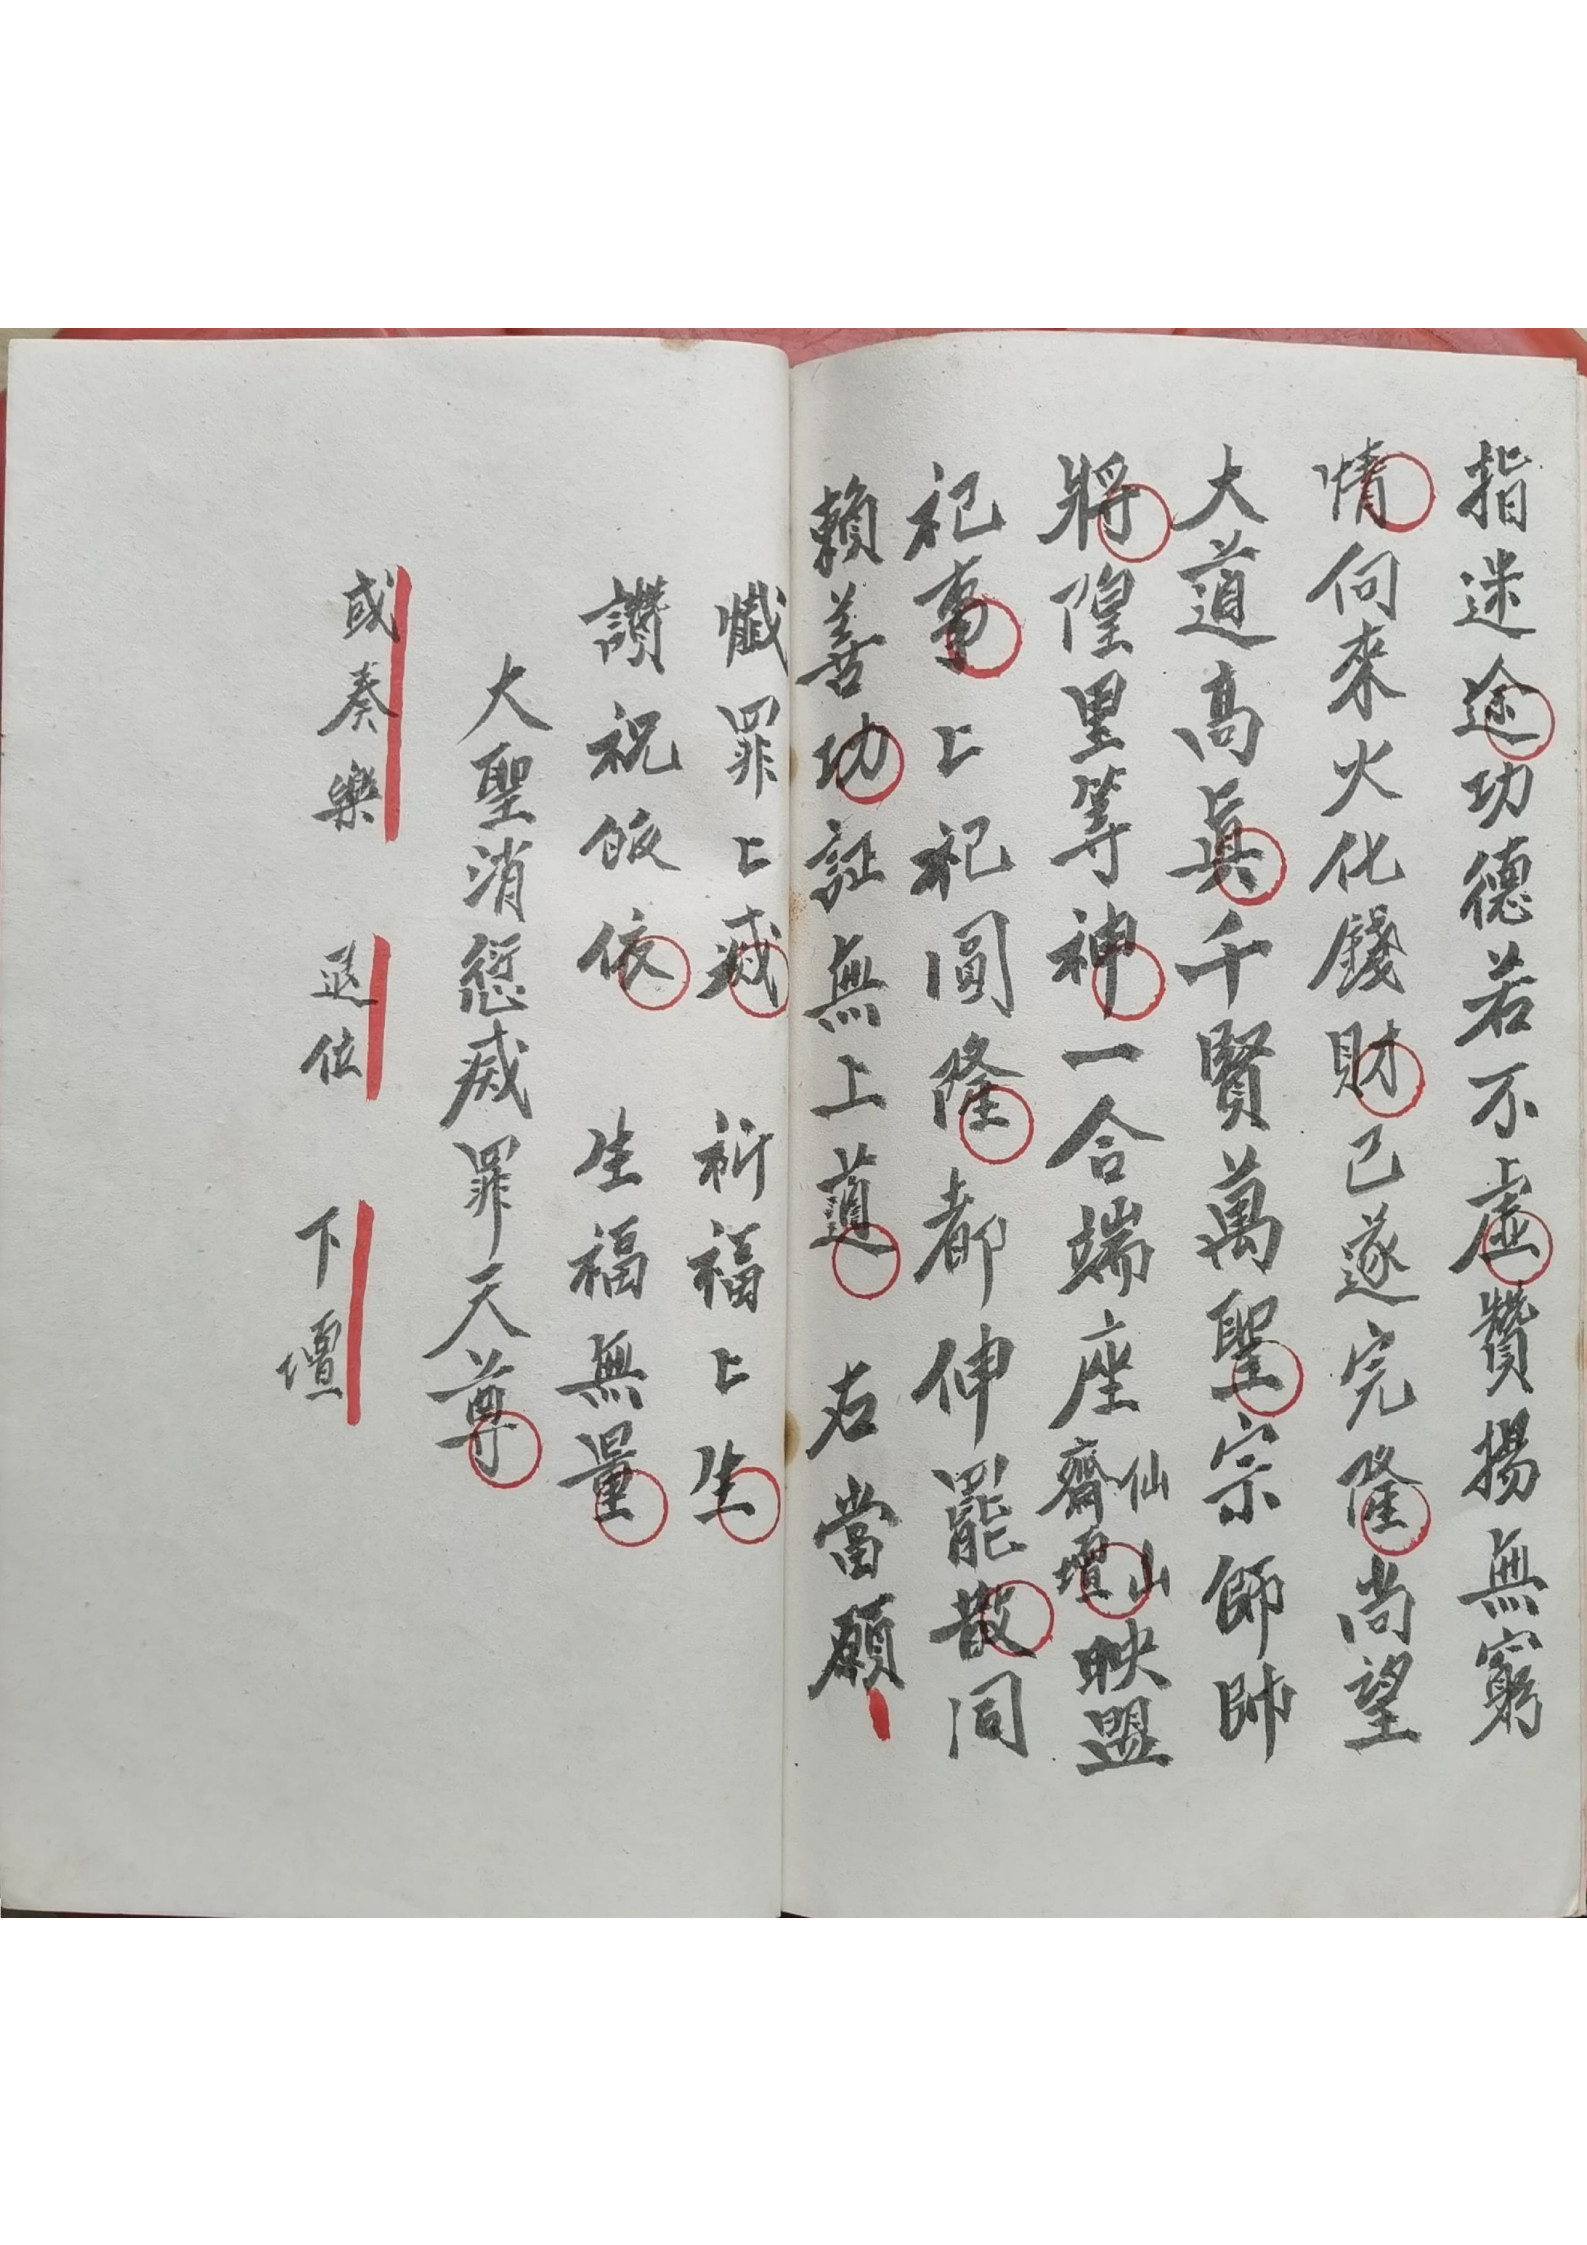 指迷途功德若不虛贊揚無窮
情向來火化錢財已遂完隆尚望
大道高眞千賢萬聖宗師帥
將隍里等神一合端座仙山齋壇映盟
祀事〻祀圓隆都伸罷散同
賴善功証無上道 右當願
懺罪〻滅 祈福〻生
讚祝皈依 生福無量
大聖消愆滅罪天尊
或奏樂 退位 下壇